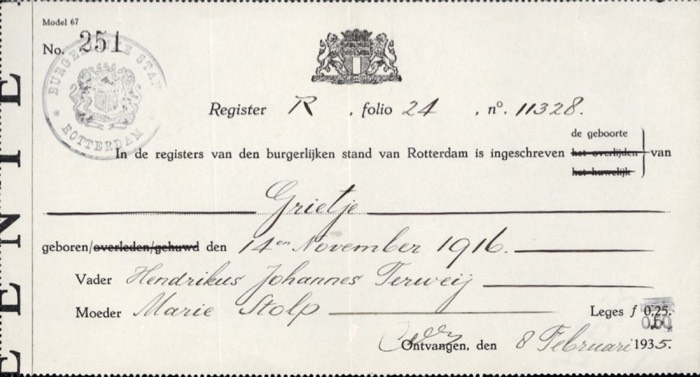 Model 67
No. 251
BURGERLIJKE STAND
* ROTTERDAM *
Register R, folio 24, nº. 11328.
de geboorte
In de registers van den burgerlijken stand van Rotterdam is ingeschreven het overlijden van
het huwelijk
Grietje
geboren/overleden/gehuwd den 14en November 1916.
Vader Hendrikus Johannes Terweij
Moeder Marie Stolp
Leges f 0,25.
0,60
Ontvangen, den 8 Februari 1935.
ENTE